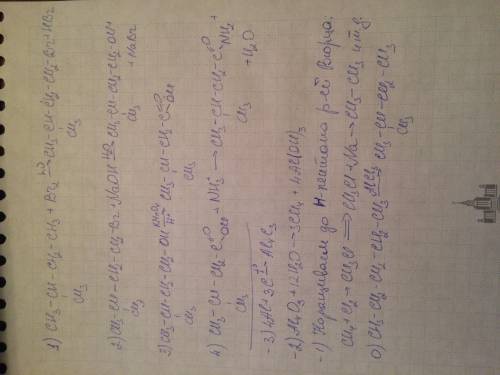 1) CH3-CH-CH2-CH3 + Br2 hν→ CH3-CH-CH2-CH2-Br + HBr
CH3 CH3
2) CH3-CH-CH2-CH2-Br + NaOH H2O→ CH3-CH-CH2-CH2-OH +
CH3 CH3 + NaBr
3) CH3-CH-CH2-CH2-OH KMnO4 H+→ CH3-CH-CH2-C=O OH
CH3 CH3
4) CH3-CH-CH2-C=O OH + NH3 → CH3-CH-CH2-C=O NH2 +
CH3 CH3 + H2O
-3) 4Al + 3C t°→ Al4C3
-2) Al4C3 + 12H2O → 3CH4 + 4Al(OH)3
-1) Наращиваем до н-пентана р-ей Вюрца;
CH4 + Cl2 → CH3Cl ⇒ CH3Cl + Na → CH3-CH3 и т.д.
0) CH3-CH2-CH2-CH2-CH3 AlCl3→ CH3-CH-CH2-CH3
CH3